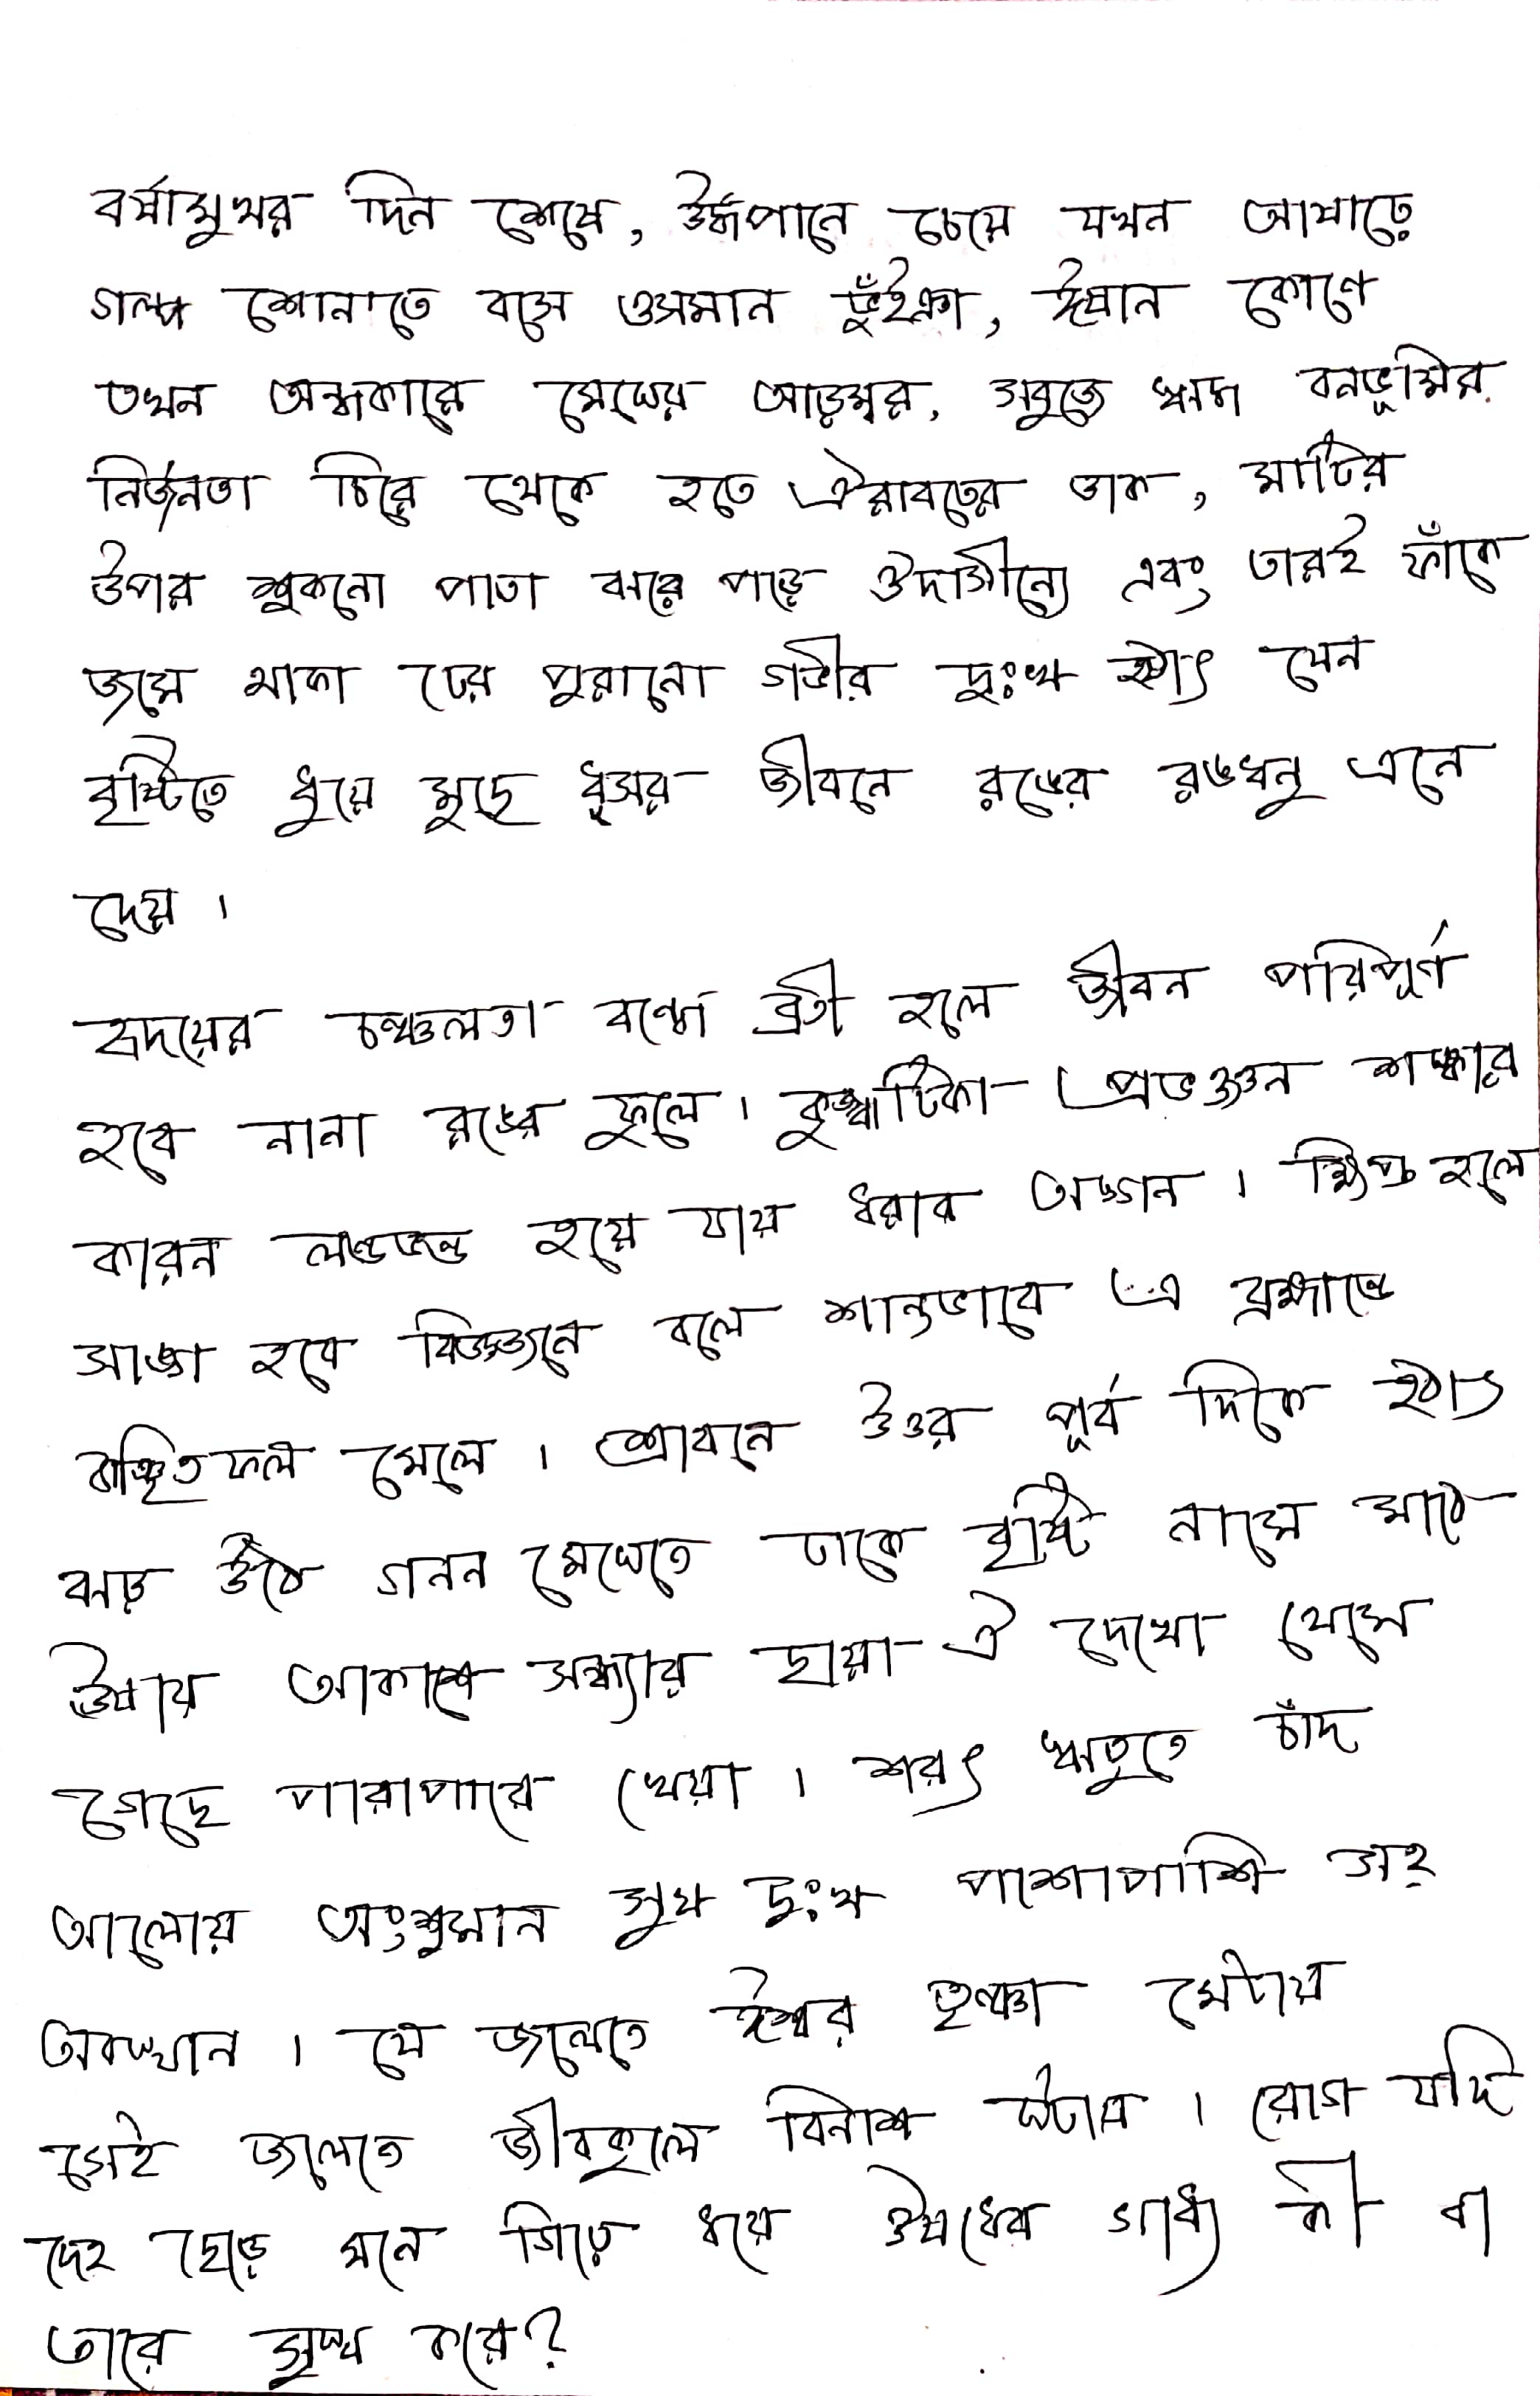 বর্ষামুখর দিন শেষে, উর্দ্ধপানে চেয়ে যখন আষাঢ়ে
গল্প শোনাতে বসে ওসমান ভুঁইঞা, ঈষান কোণে
তখন অন্ধকারে মেঘের আড়ম্বর, সবুজে ঋদ্ধ বনভূমির
নির্জনতা চিরে থেকে হতে ঐরাবতের ডাক, মাটির
উপর শুকনো পাতা ঝরে পড়ে ঔদাসীন্যে এবং তারই ফাঁকে
জমে থাকা ঢের পুরানো গভীর দুঃখ হঠাৎ যেন
বৃষ্টিতে ধুয়ে মুছে ধূসর জীবনে রঙের রঙধনু এনে
দেয়।
হৃদয়ের চঞ্চলতা বন্ধে ব্রতী হলে জীবন পরিপূর্ণ
হবে নানা রঙের ফুলে। কুজ্ঝটিকা প্রভঞ্জন শঙ্কার
কারন লণ্ডভন্ড হয়ে যায় ধরার অঙ্গন। ক্ষিপ্ত হলে
সাঙ্গ হবে বিজ্ঞজনে বলে শান্তভাবে এ ব্রহ্মান্ডে
বাঞ্ছিতফল মেলে। শ্রাবনে উত্তর পূর্ব দিকে হঠাৎ
ঝড় উঠে গগন মেঘেতে ঢাকে বৃষ্টি নামে মাঠে
ঊষায় আকাশে সন্ধ্যার ছায়া ঐ দেখো থেমে
গেছে পারাপারে খেয়া। শরৎ ঋতুতে চাঁদ
আলোয় অংশুমান সুখ দুঃখ পাশোপাশি সহ
অবস্থান। যে জলেতে ঈশ্বর তৃষ্ণা মেটায়
সেই জলেতে জীবকুলে বিনাশ ঘটায়। রোগ যদি
দেহ ছেড়ে মনে গিয়ে ধরে ঔষধের সাধ্য কী বা
তারে সুস্থ করে?